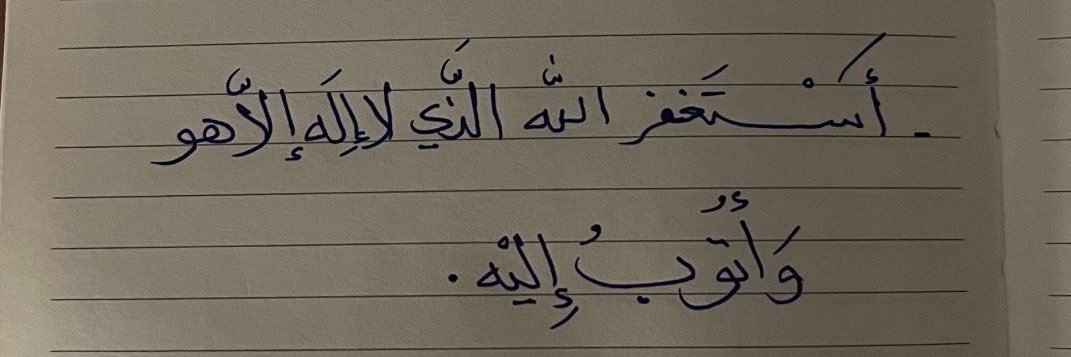 - أَسْتَغفر اللّه الَّذي لا إِلَه إلّا هو
وَأُتوبُ إِليْه .